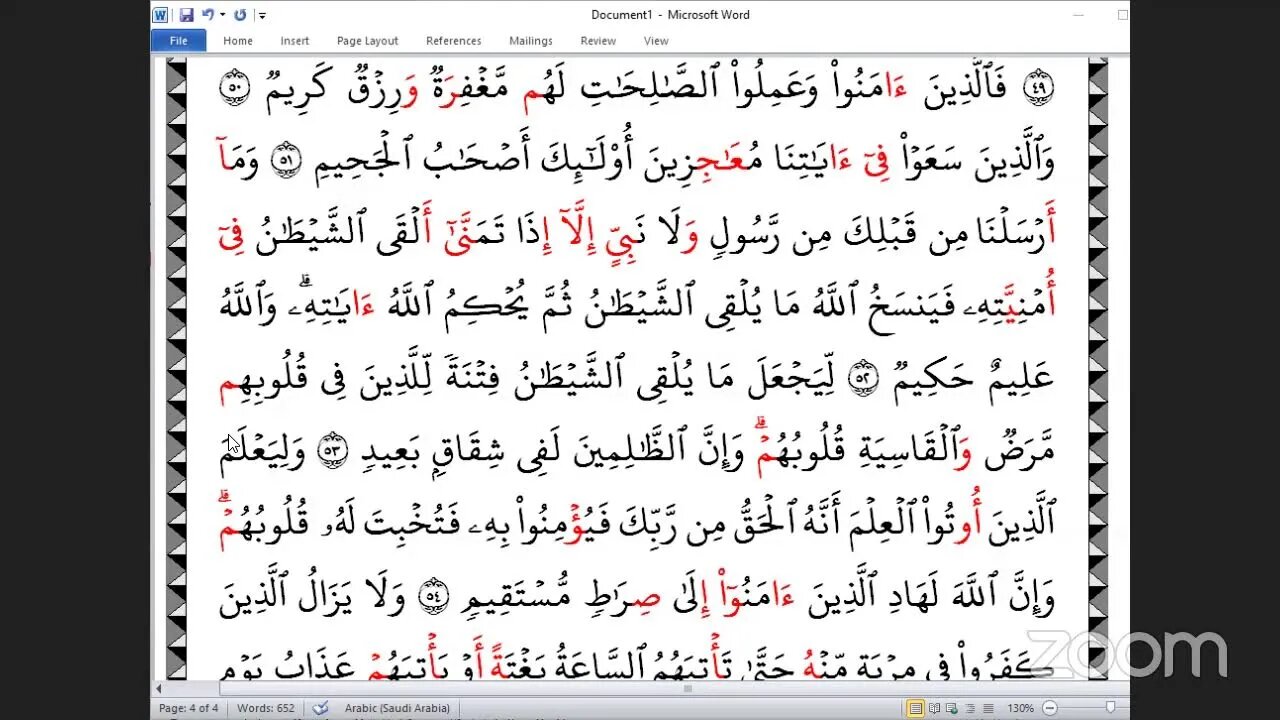 Document1 - Microsoft Word
File Home Insert Page Layout References Mailings Review View
٤٩ فَٱلَّذِينَ ءَامَنُوا۟ وَعَمِلُوا۟ ٱلصَّـٰلِحَـٰتِ لَهُم مَّغْفِرَةٌ وَرِزْقٌ كَرِيمٌ ٥٠
وَٱلَّذِينَ سَعَوْا۟ فِىٓ ءَايَـٰتِنَا مُعَـٰجِزِينَ أُو۟لَـٰٓئِكَ أَصْحَـٰبُ ٱلْجَحِيمِ ٥١ وَمَآ
أَرْسَلْنَا مِن قَبْلِكَ مِن رَّسُولٍ وَلَا نَبِىٍّ إِلَّآ إِذَا تَمَنَّىٰٓ أَلْقَى ٱلشَّيْطَـٰنُ فِىٓ
أُمْنِيَّتِهِۦ فَيَنسَخُ ٱللَّهُ مَا يُلْقِى ٱلشَّيْطَـٰنُ ثُمَّ يُحْكِمُ ٱللَّهُ ءَايَـٰتِهِۦ ۗ وَٱللَّهُ
عَلِيمٌ حَكِيمٌ ٥٢ لِّيَجْعَلَ مَا يُلْقِى ٱلشَّيْطَـٰنُ فِتْنَةً لِّلَّذِينَ فِى قُلُوبِهِم
مَّرَضٌ وَٱلْقَاسِيَةِ قُلُوبُهُمْ ۗ وَإِنَّ ٱلظَّـٰلِمِينَ لَفِى شِقَاقٍۭ بَعِيدٍ ٥٣ وَلِيَعْلَمَ
ٱلَّذِينَ أُوتُوا۟ ٱلْعِلْمَ أَنَّهُ ٱلْحَقُّ مِن رَّبِّكَ فَيُؤْمِنُوا۟ بِهِۦ فَتُخْبِتَ لَهُۥ قُلُوبُهُمْ ۗ
وَإِنَّ ٱللَّهَ لَهَادِ ٱلَّذِينَ ءَامَنُوٓا۟ إِلَىٰ صِرَٰطٍ مُّسْتَقِيمٍ ٥٤ وَلَا يَزَالُ ٱلَّذِينَ
كَفَرُوا۟ فِى مِرْيَةٍ مِّنْهُ حَتَّىٰ تَأْتِيَهُمُ ٱلسَّاعَةُ بَغْتَةً أَوْ يَأْتِيَهُمْ عَذَابُ يَوْمٍ
zoom
Page: 4 of 4 Words: 652 Arabic (Saudi Arabia) 130%